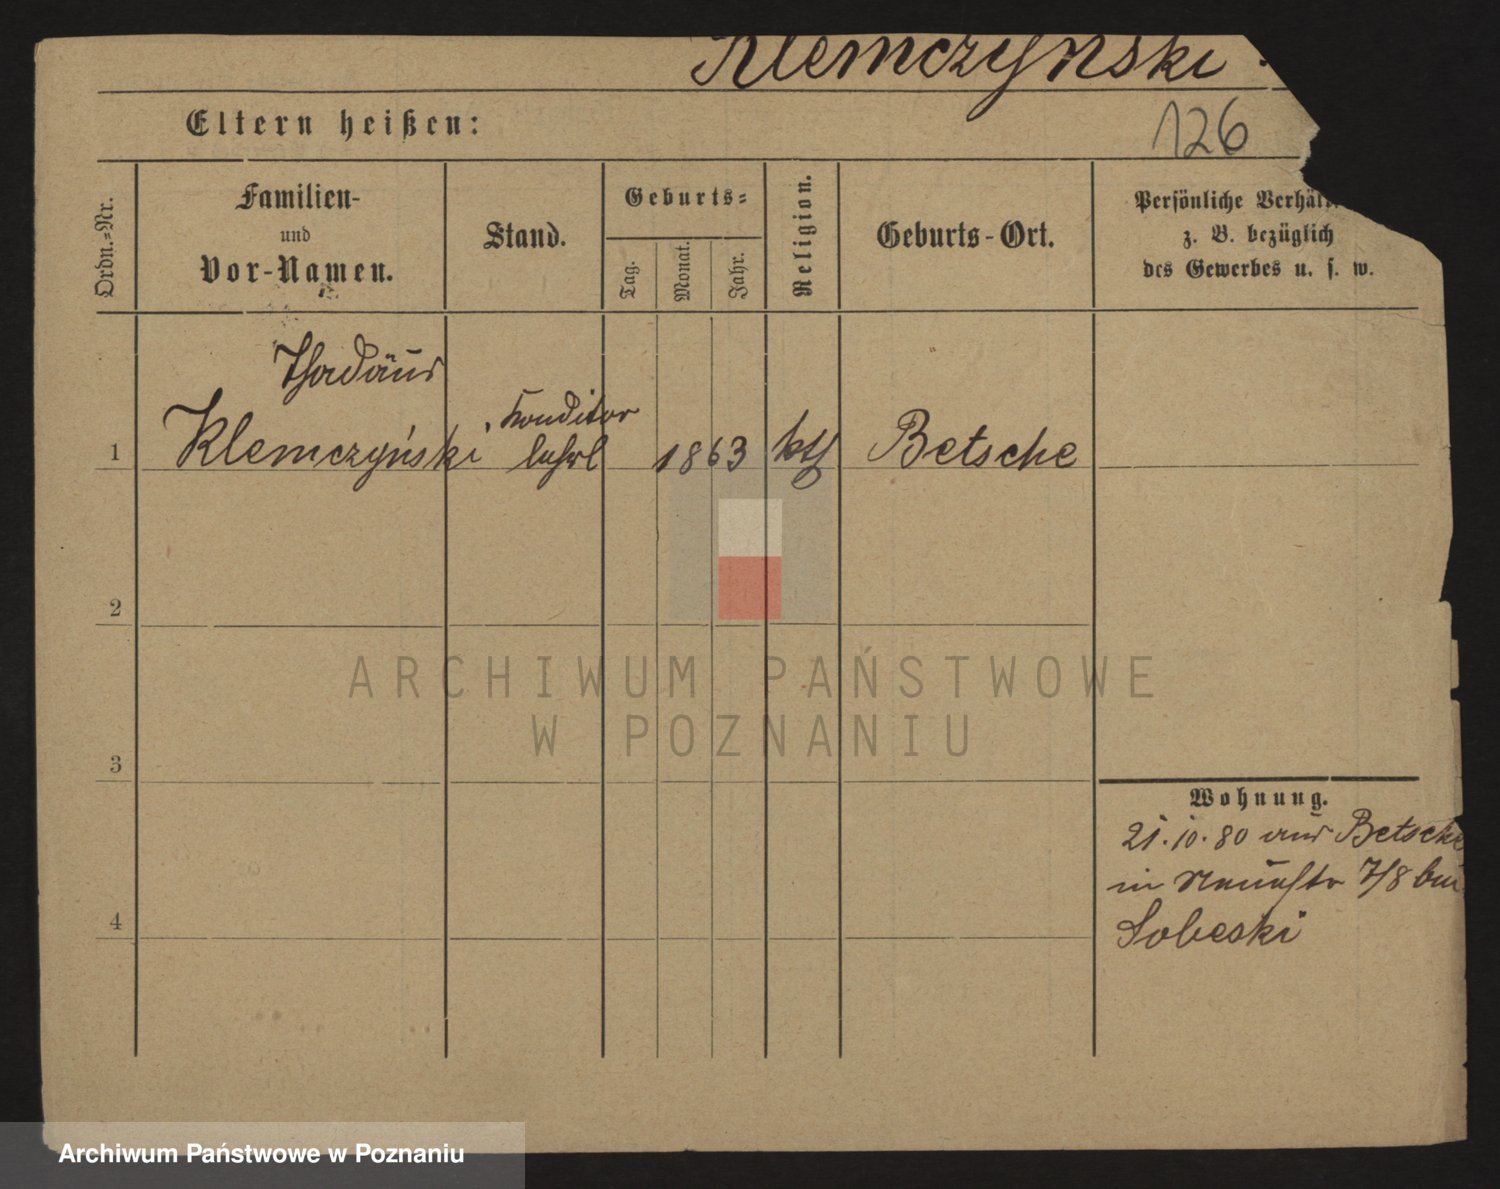 Klemczyński.
Eltern heißen:
126
Ordn.=Nr.
Familien-
und
Vor-Namen.
Stand.
Geburts=
Tag.
Monat.
Jahr.
Religion.
Geburts-Ort.
Persönliche Verhält
z. B. bezüglich
des Gewerbes u. s. w.
Thadäus
1 Klemczyński, Konditor lehrl 1863 kth Betsche
2
3
4
Wohnung.
21.10.80 aus Betsche
in Neuestr 7/8 bei
Sobeski
ARCHIWUM PAŃSTWOWE
W POZNANIU
Archiwum Państwowe w Poznaniu